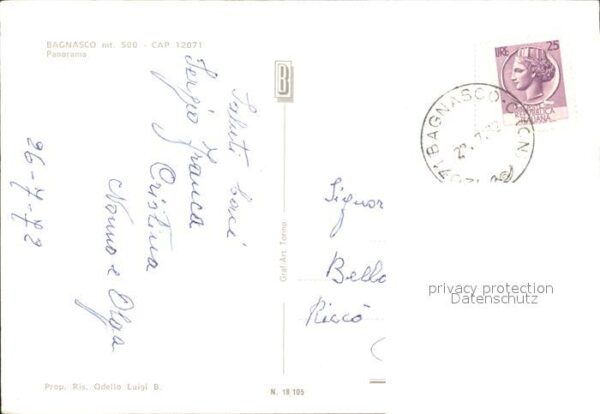 BAGNASCO mt. 500 - CAP 12071
Panorama
Saluti cari
Sergio Franca
Cristina
Nonno e Olga
26-7-72
Graf-Art Torino
LIRE 25
REPUBBLICA
ITALIANA
BAGNASCO
Signor
Bello
Riccò
privacy protection
Datenschutz
Prop. Ris. Odello Luigi B.
N. 18 105